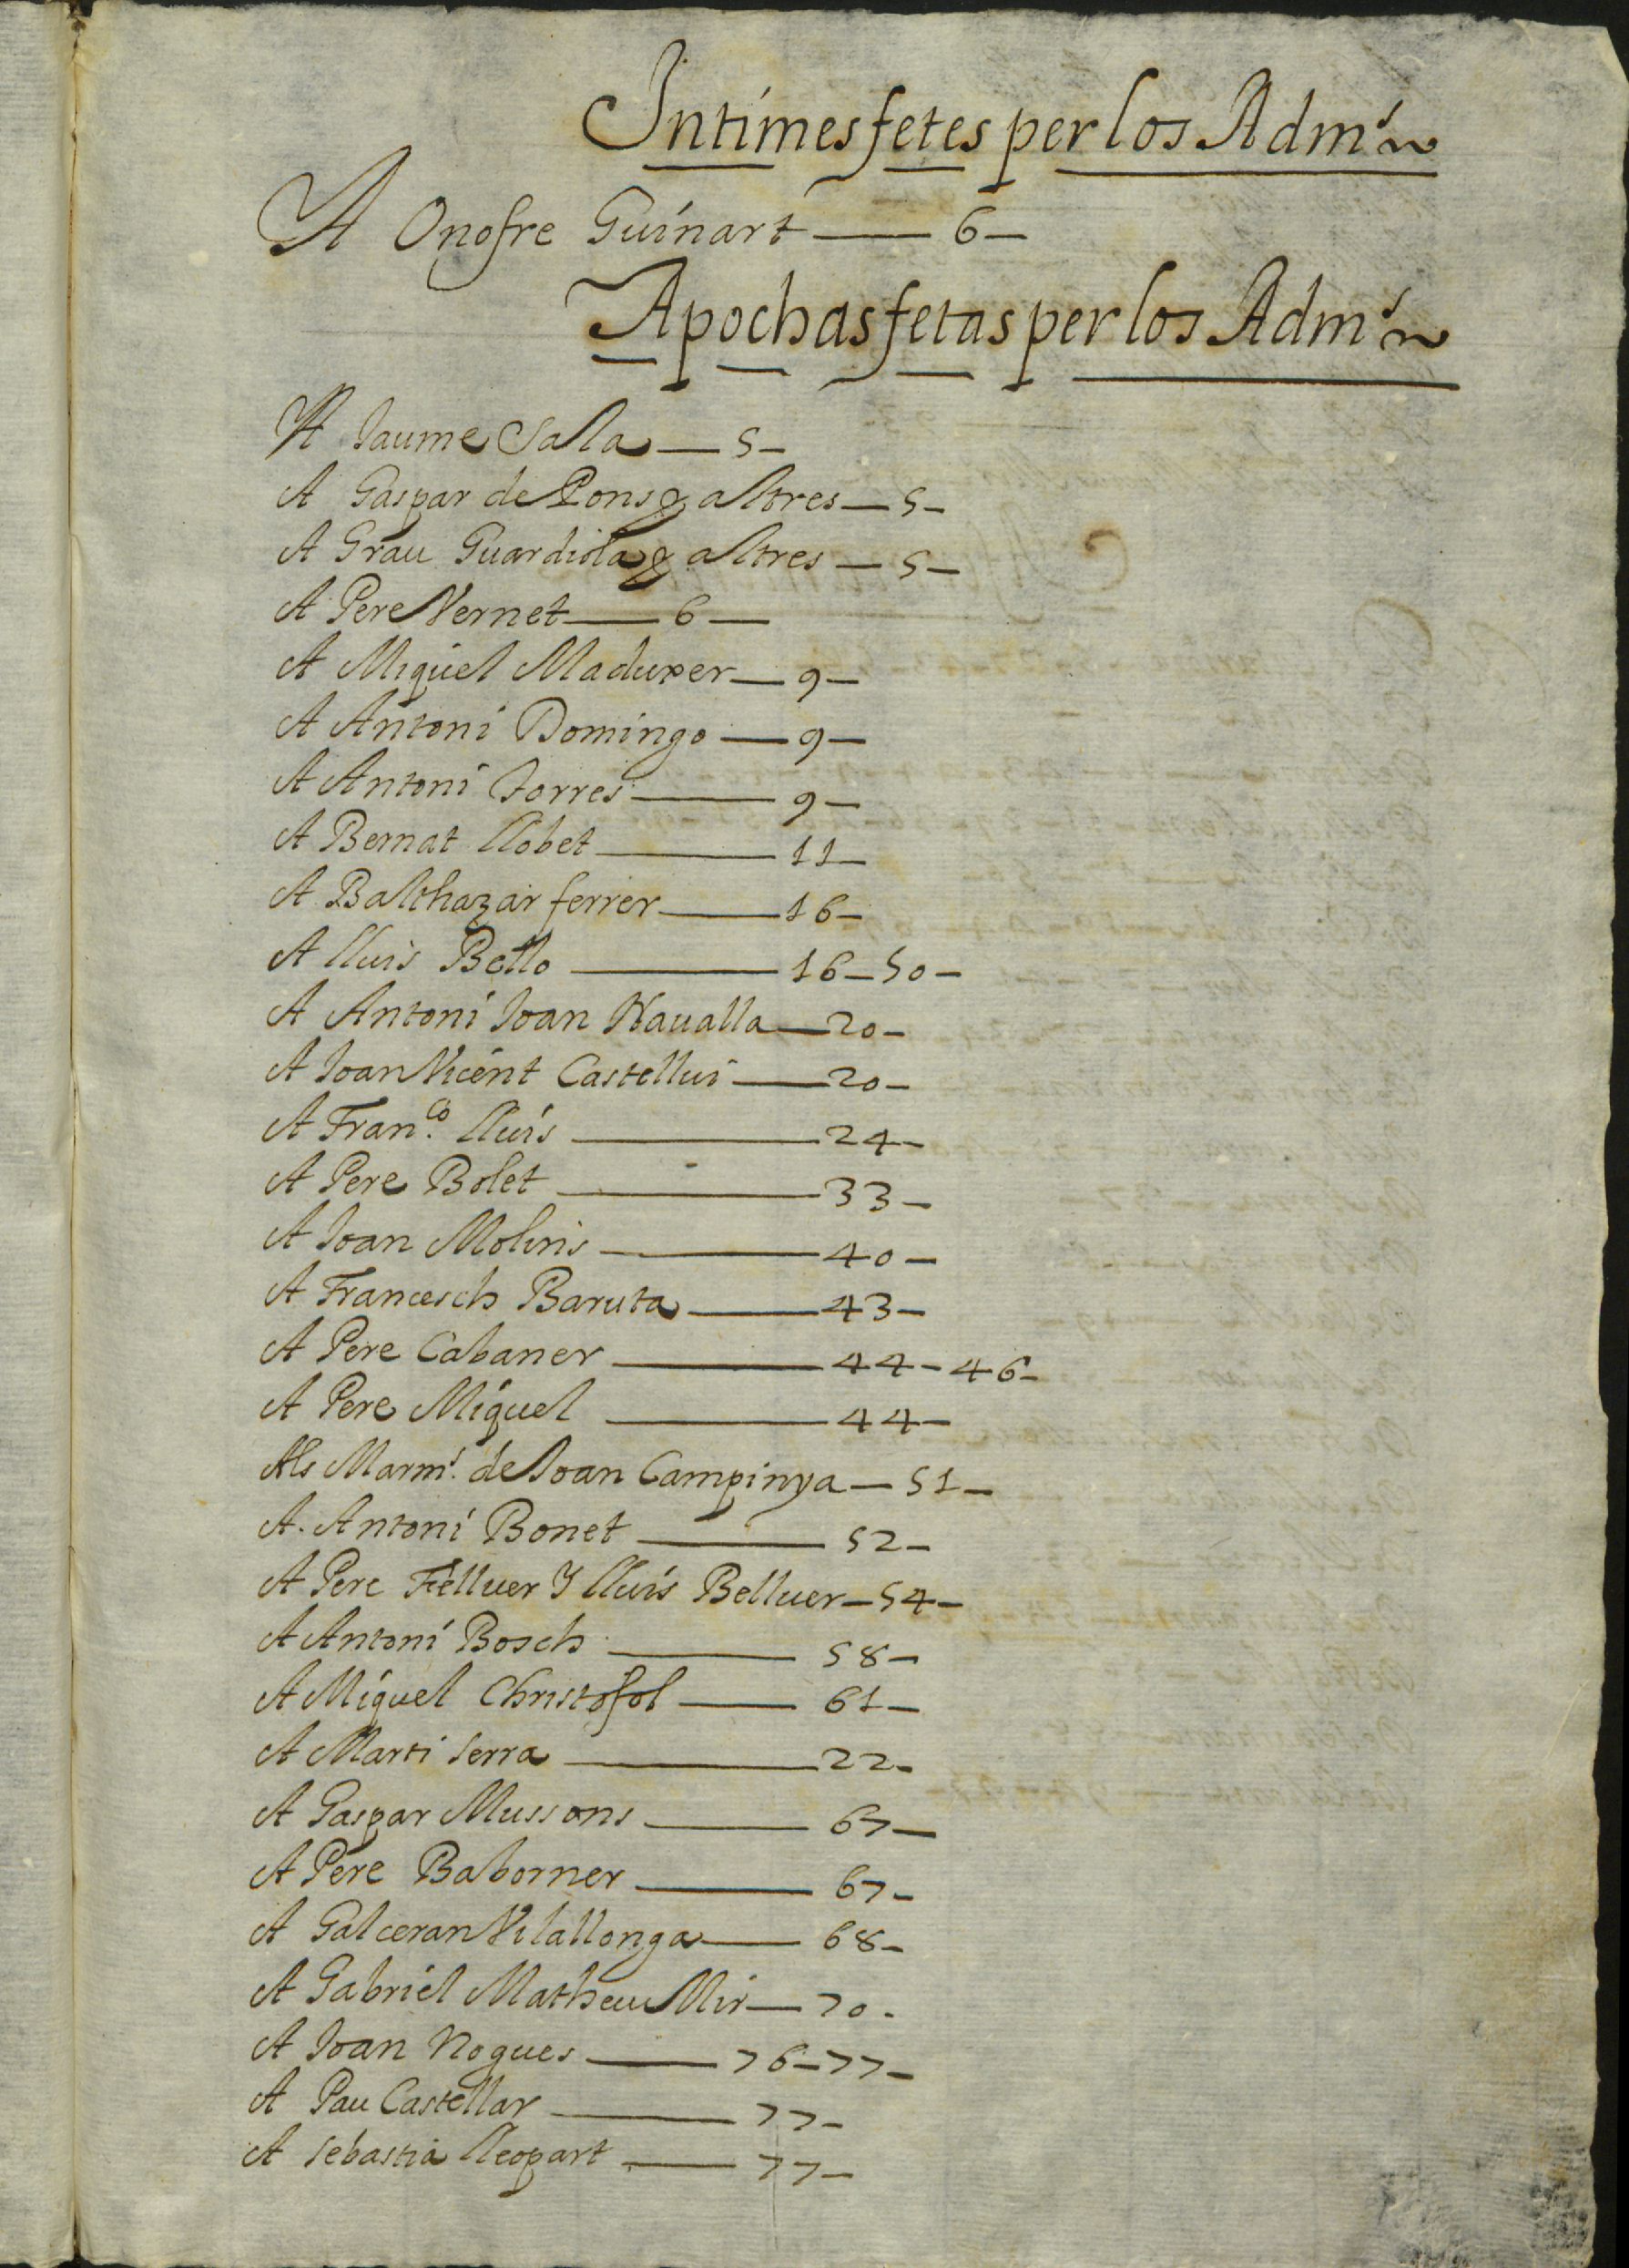 Intimes fetes per los Adm.rs
A Onofre Guinart — 6 —
Apochas fetas per los Adm.rs
A Jaume Sala — 5 —
A Gaspar de Pons & altres — 5 —
A Grau Guardiola & altres — 5 —
A Pere Vernet — 6 —
A Miquel Maduxer — 9 —
A Antoni Domingo — 9 —
A Antoni Torres — 9 —
A Bernat llobet — 11 —
A Balthazar ferrer — 16 —
A lluis Bello — 16 — 50 —
A Antoni Joan Naualla — 20 —
A Joan Vicent Castellui — 20 —
A Fran.co lluis — 24 —
A Pere Bolet — 33 —
A Joan Molins — 40 —
A Francesch Baruta — 43 —
A Pere Cabaner — 44 — 46 —
A Pere Miquel — 44 —
Als Marm.s de Joan Campinya — 51 —
A. Antoni Bonet — 52 —
A Pere Felluer Y lluis Belluer — 54 —
A Antoni Bosch — 58 —
A Miquel Christofol — 61 —
A Marti Serra — 22 —
A Gaspar Mussons — 67 —
A Pere Baborner — 67 —
A Galceran Vilallonga — 68 —
A Gabriel Matheu Mir — 70 -
A Joan Nogues — 76 — 77 —
A Pau Castellar — 77 —
A Sebastia lleopart — 77 —